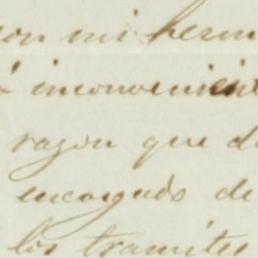 con mi herm
á inconvenien
razon que d
encargado de
los tramites